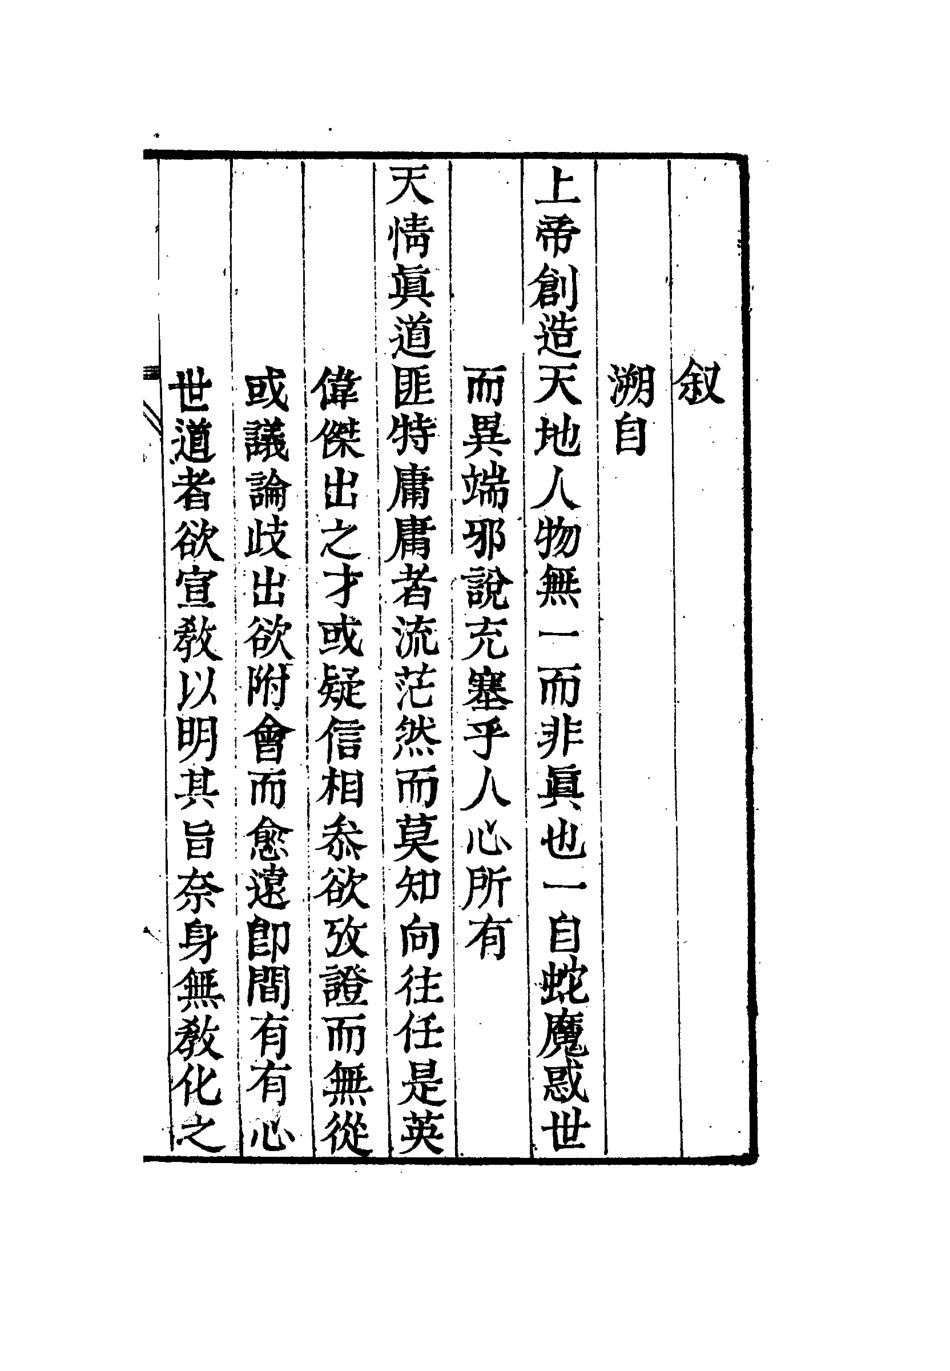 叙
溯自
上帝創造天地人物無一而非眞也一自蛇魔惑世
而異端邪說充塞乎人心所有
天情眞道匪特庸庸者流茫然而莫知向往任是英
偉傑出之才或疑信相叅欲攷證而無從
或議論歧出欲附會而愈遠卽間有有心
世道者欲宣敎以明其旨奈身無敎化之